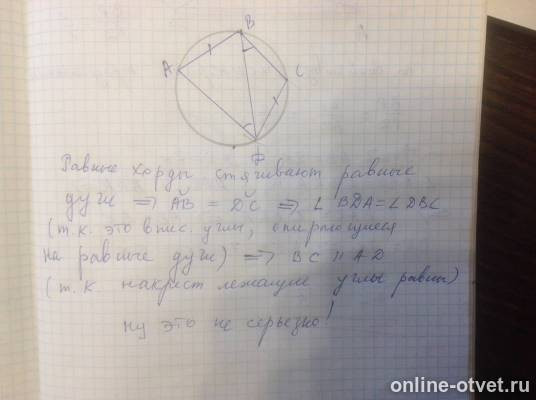 B
A
C
D
Равные хорды стягивают равные
дуги => ÃB = DC => ∠ BDA = ∠ DBC
(т.к. это впис. углы, опирающиеся
на равные дуги) => BC || AD
(т.к. накрест лежащие углы равны)
ну это не серьезно!
online-otvet.ru